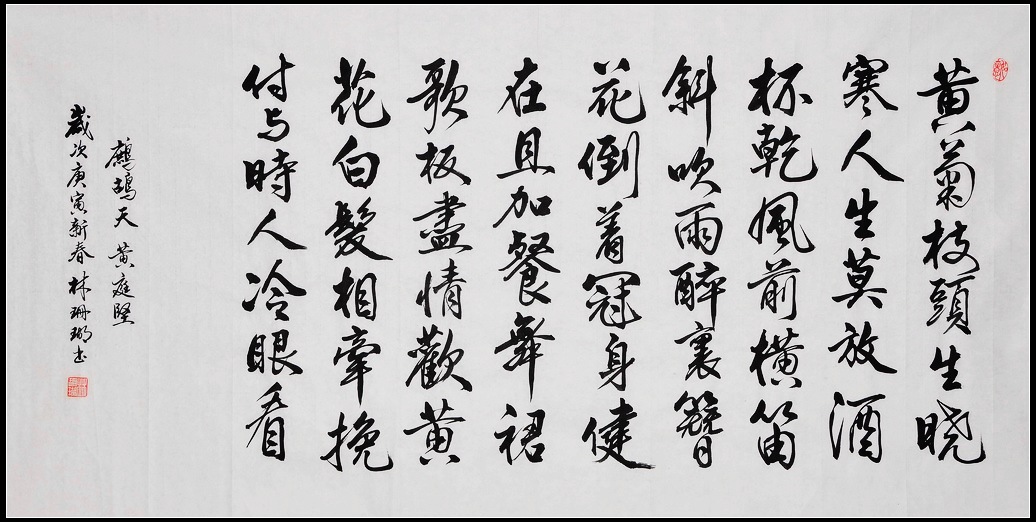 黄菊枝頭生曉
寒人生莫放酒
杯乾風前橫笛
斜吹雨醉裏簪
花倒著冠身健
在且加餐舞裙
歌板盡情歡黄
花白髮相牽挽
付与時人冷眼看
鷓鴣天 黄庭堅
歲次庚寅新春 林珊瑚书